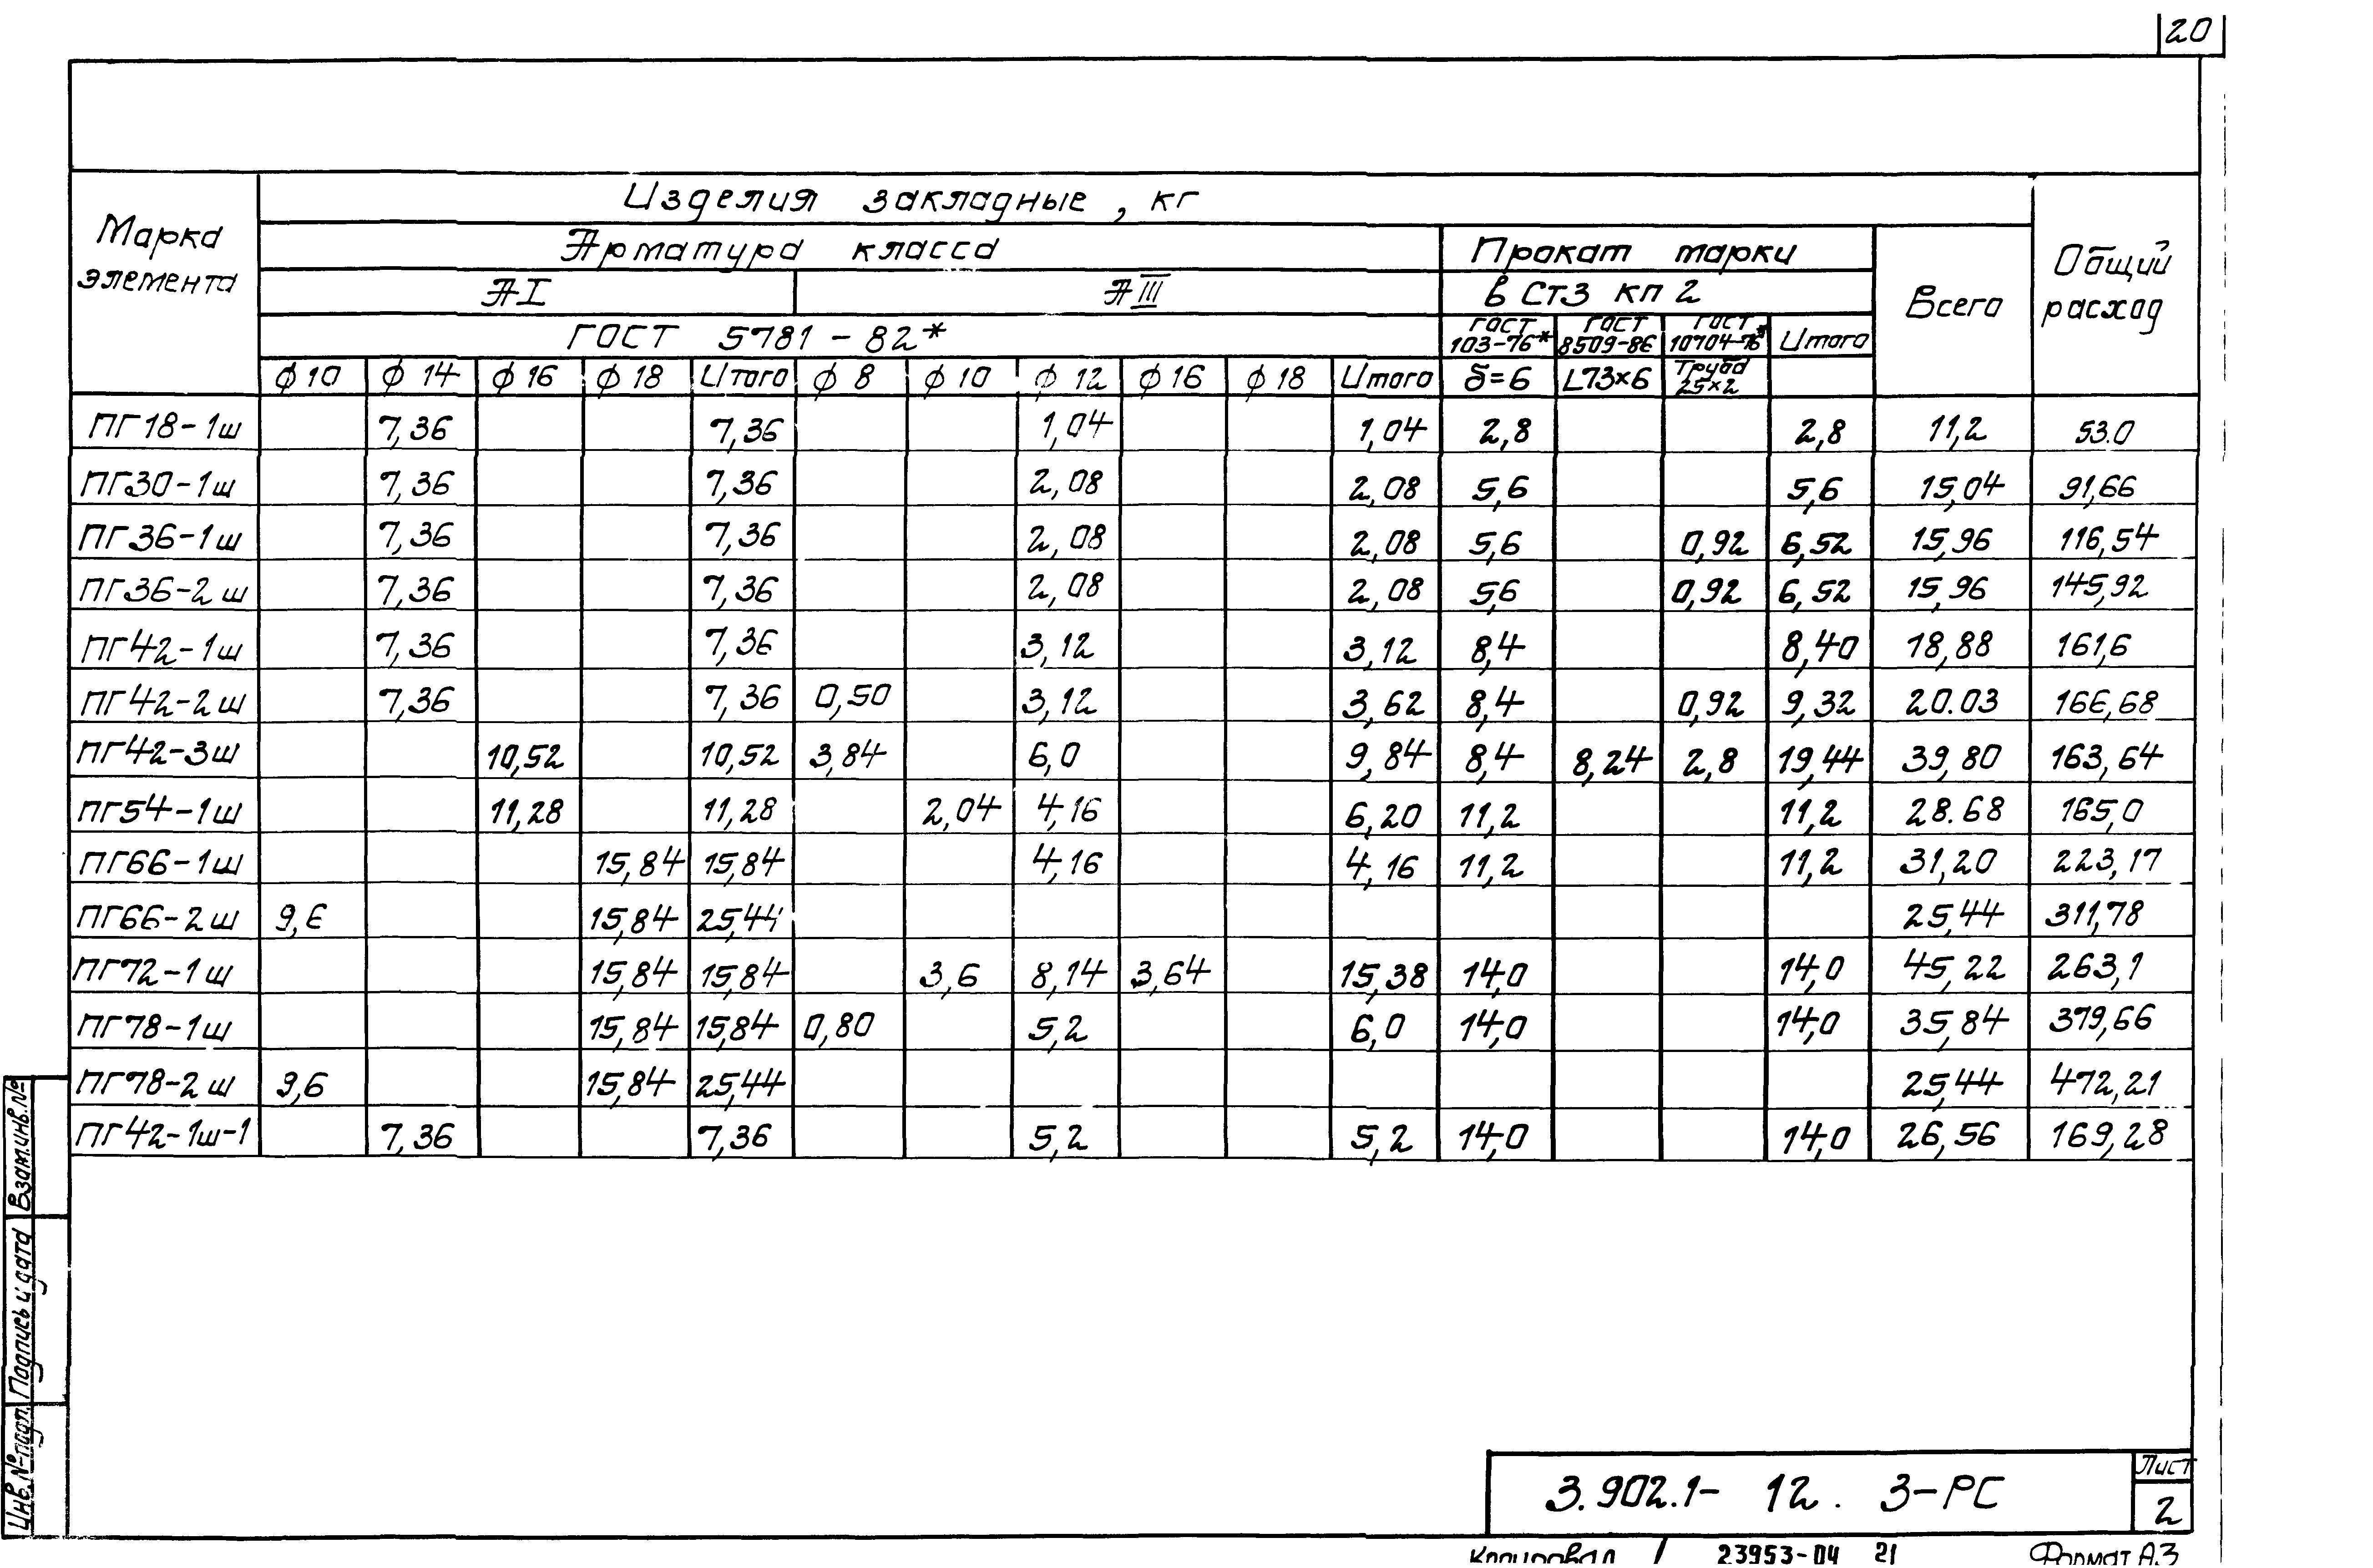 20
Марка элемента
Изделия закладные, кг
Общий расход
Арматура класса
Прокат марки
Всего
АI
АIII
в Ст3 кп 2
ГОСТ 5781-82*
ГОСТ 103-76*
ГОСТ 8509-86
ГОСТ 10704-76*
Итого
ϕ10 ϕ14 ϕ16 ϕ18 Итого ϕ8 ϕ10 ϕ12 ϕ16 ϕ18 Итого δ=6 L73×6 Труба 25×2
ПГ18-1ш 7,36 7,36 1,04 1,04 2,8 2,8 11,2 53.0
ПГ30-1ш 7,36 7,36 2,08 2,08 5,6 5,6 15,04 91,66
ПГ36-1ш 7,36 7,36 2,08 2,08 5,6 0,92 6,52 15,96 116,54
ПГ36-2ш 7,36 7,36 2,08 2,08 5,6 0,92 6,52 15,96 145,92
ПГ42-1ш 7,36 7,36 3,12 3,12 8,4 8,40 18,88 161,6
ПГ42-2ш 7,36 7,36 0,50 3,12 3,62 8,4 0,92 9,32 20.03 166,68
ПГ42-3ш 10,52 10,52 3,84 6,0 9,84 8,4 8,24 2,8 19,44 39,80 163,64
ПГ54-1ш 11,28 11,28 2,04 4,16 6,20 11,2 11,2 28.68 165,0
ПГ66-1ш 15,84 15,84 4,16 4,16 11,2 11,2 31,20 223,17
ПГ66-2ш 9,6 15,84 25,44 25,44 311,78
ПГ72-1ш 15,84 15,84 3,6 8,14 3,64 15,38 14,0 14,0 45,22 263,1
ПГ78-1ш 15,84 15,84 0,80 5,2 6,0 14,0 14,0 35,84 379,66
ПГ78-2ш 9,6 15,84 25,44 25,44 472,21
ПГ42-1ш-1 7,36 7,36 5,2 5,2 14,0 14,0 26,56 169,28
Взам.инв.№
Подпись и дата
Инв.№ подл.
3.902.1-12. 3-РС
Лист
2
Копировал 23953-04 21 Формат А3